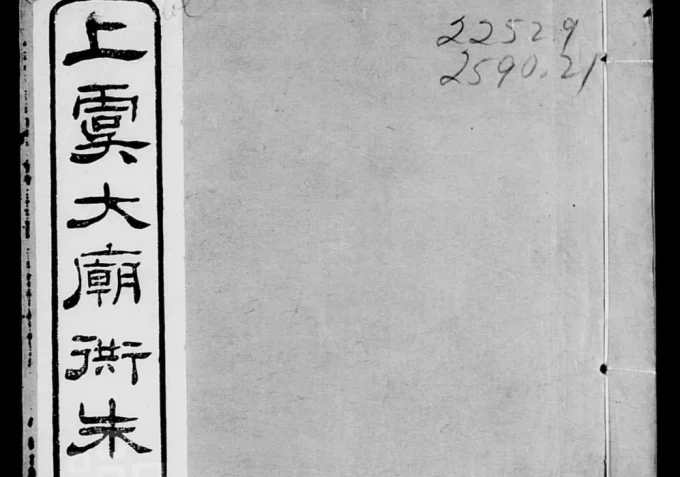 上虞大廟衖朱
22529
2590.21